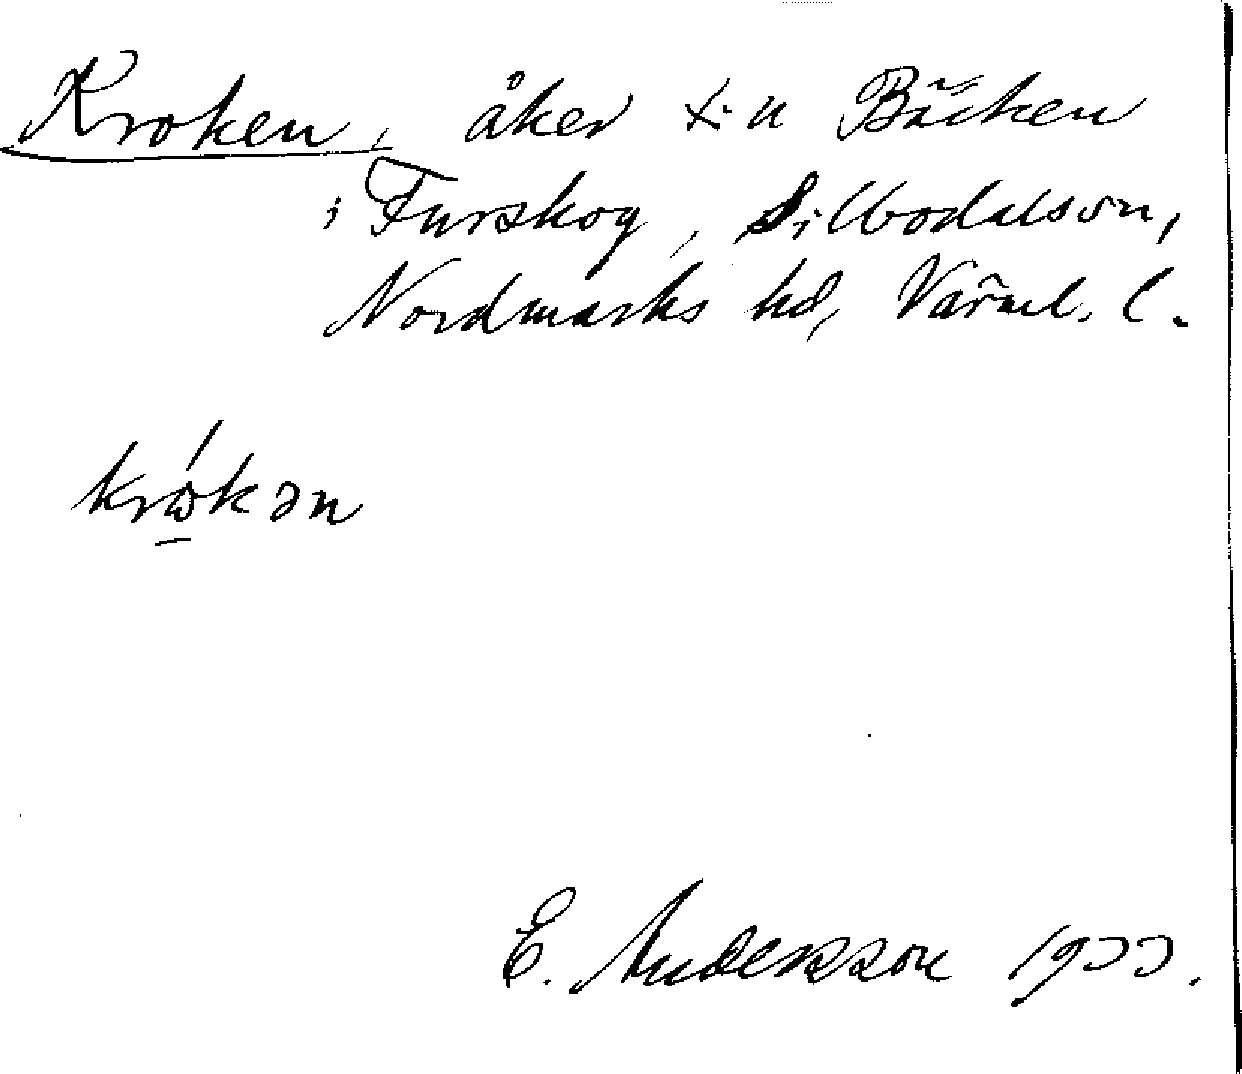 Kroken, åker t. u Bäcken
i Furskog, Silbodalssn,
Nordmarks hd, Värml. l.
krókən
E. Andersson 1933.